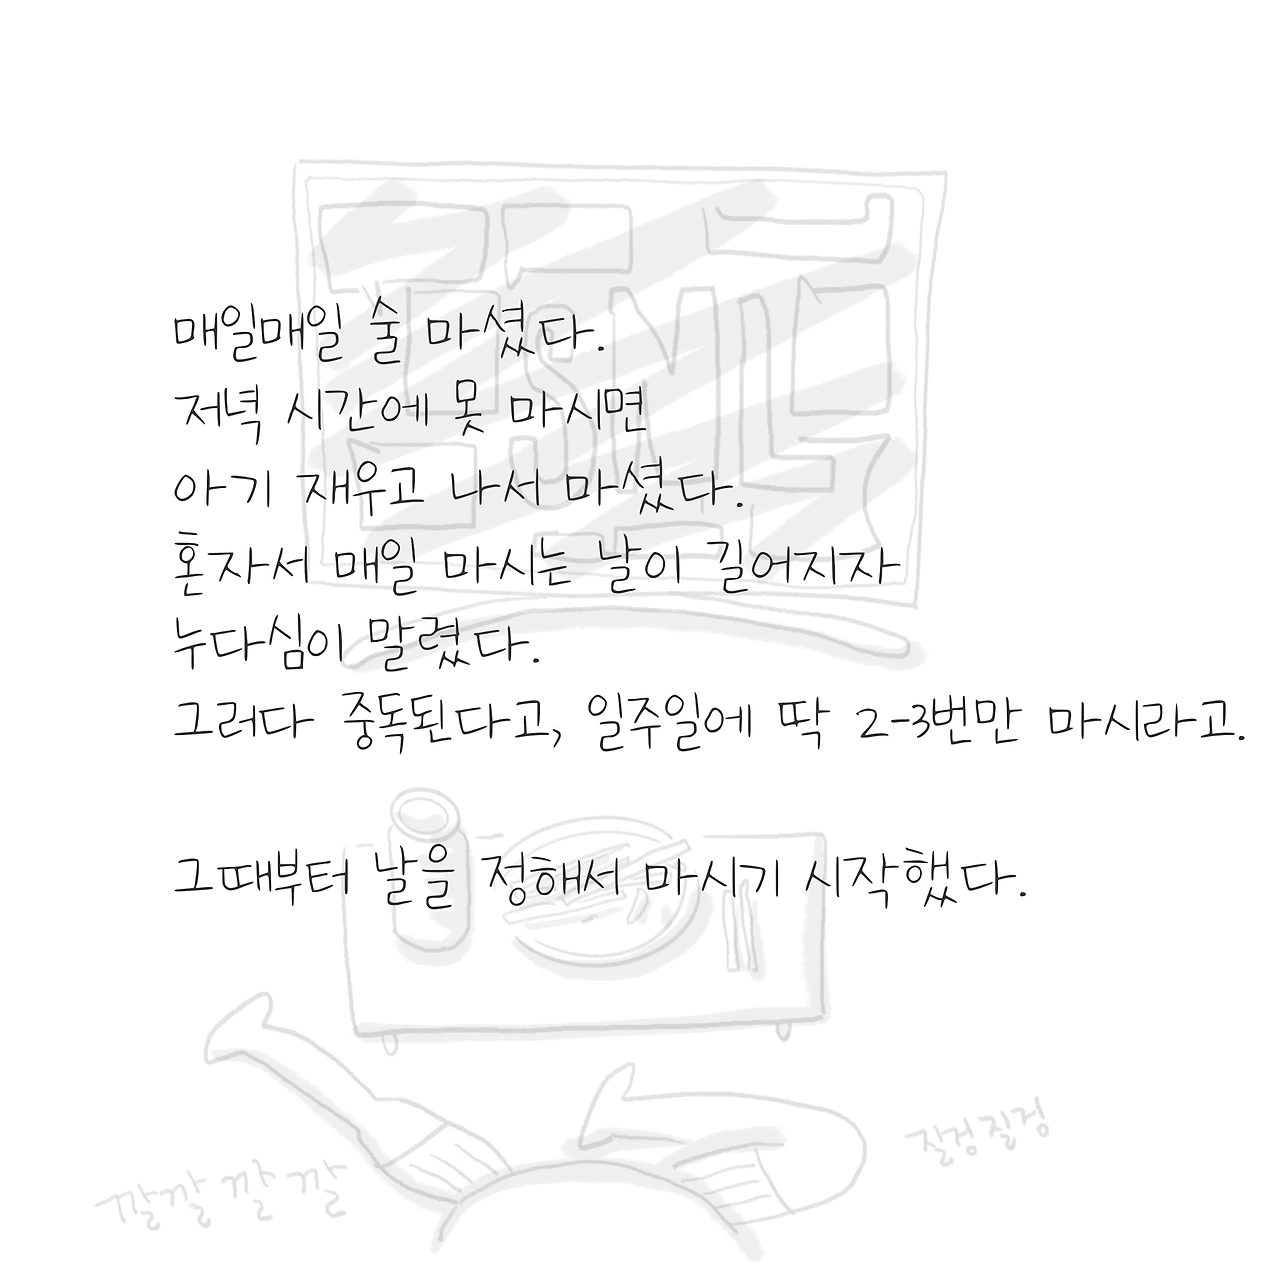 SNL
매일매일 술 마셨다.
저녁 시간에 못 마시면
아기 재우고 나서 마셨다.
혼자서 매일 마시는 날이 길어지자
누다심이 말렸다.
그러다 중독된다고, 일주일에 딱 2-3번만 마시라고.
그때부터 날을 정해서 마시기 시작했다.
질겅질겅
깔깔깔깔